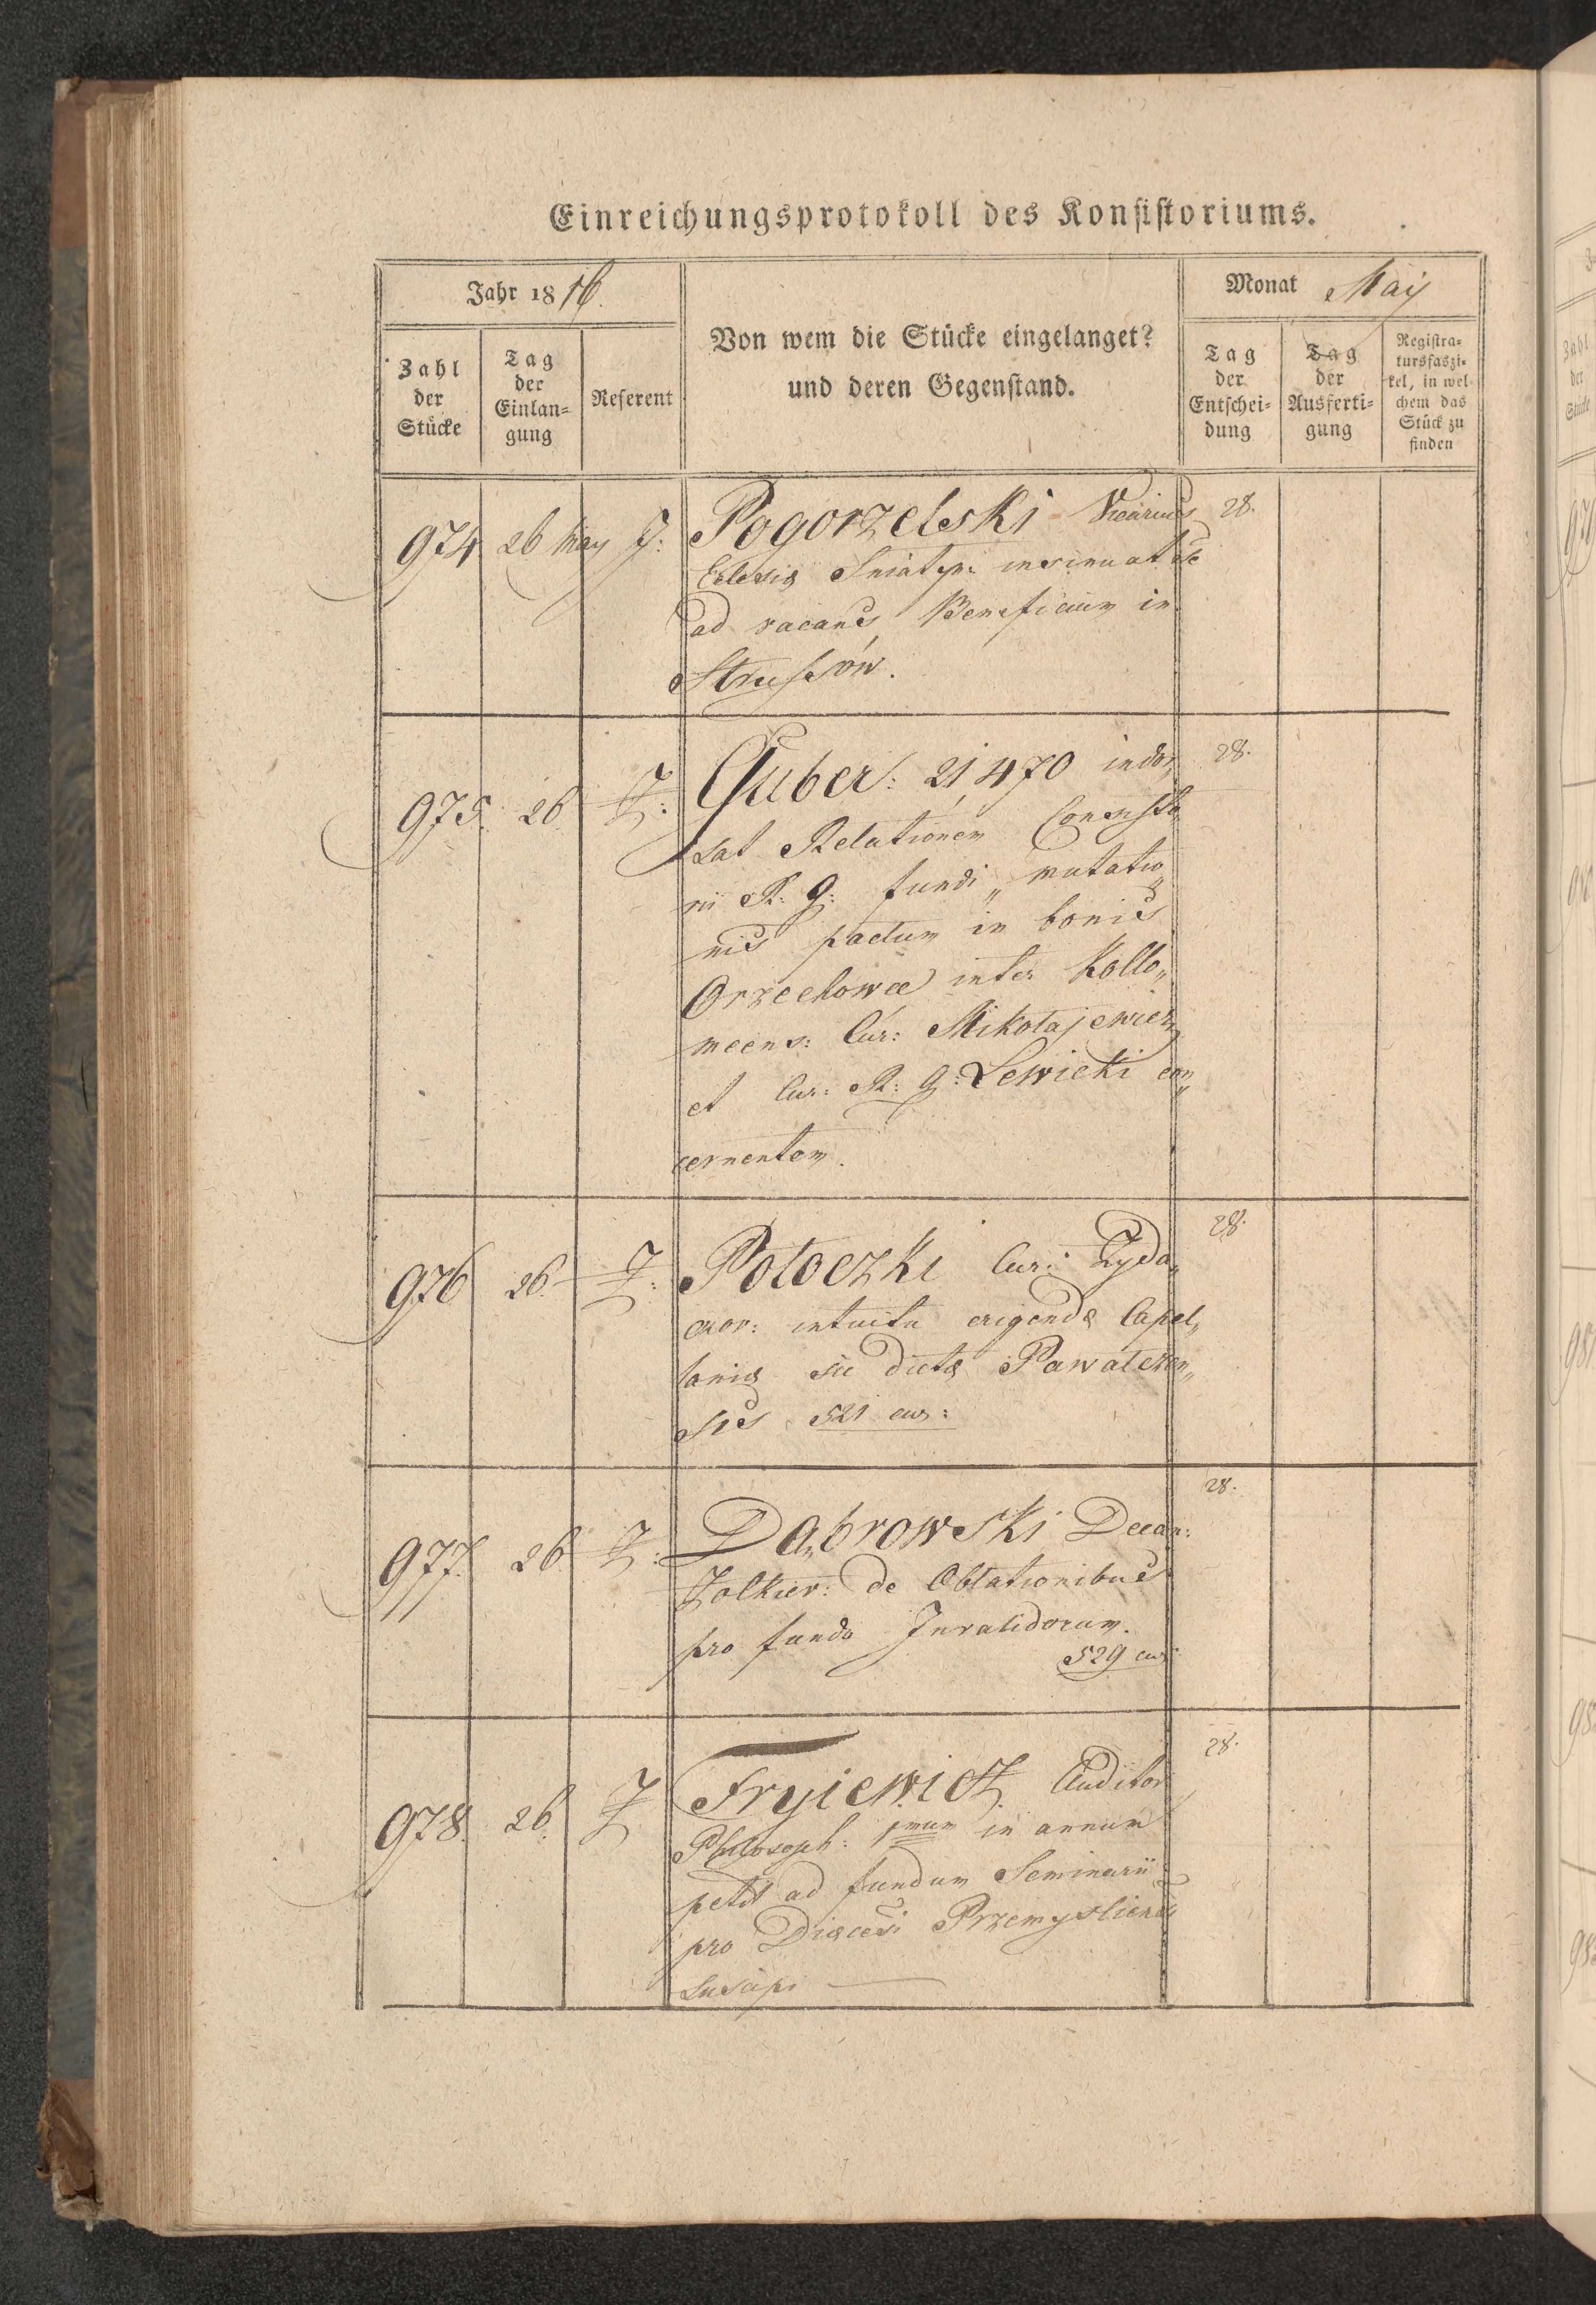 Einreichungsprotokoll des Konsistoriums.
Jahr 1816.
Monat Maij
Zahl der Stücke
Tag der Einlan=gung
Referent
Von wem die Stücke eingelanget?
und deren Gegenstand.
Tag der Entschei=dung
Tag der Ausferti=gung
Registra=tursfaszi=kel, in wel=chem das Stück zu finden
974 26 May J: Pogorzelski Vicarius 28.
Eclesiæ Sniatyn: insinuat se
ad vacans Beneficium in
Strussów.
975. 26. J: Guber: 21,470 indor„ 28.
sat Relationem Consisto
rii R: G: fundi „ mutatio„
nis pactum in bonis
Orzechowce inter Kollo„
meens: Cur: Mikołajewicz
et Cur: R: G: Lewicki con„
cernentem.
976 26. J: Potoczki Cur: Zyda„ 28.
czov: intuitu erigendæ Capel„
laniæ sic dictæ Pawalczen„
sis 521 cur:
977. 26 J: Dąbrowski Decan: 28.
Zolkiev: de Oblationibus
pro fundo Invalidorum.
529 cur:
978. 26. J Fryiewicz Auditor 28.
Philosoph: 1mum in annum
petit ad fundum Seminarii
pro Diæcesi Przemysliensi
suscipi